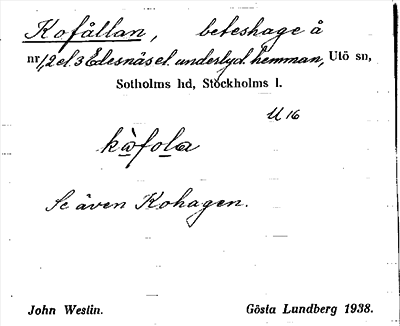 Kofållan, beteshage å
nr 1,2 el. 3 Edesnäs el. underlyd. hemman, Utö sn,
Sotholms hd, Stockholms l.
U 16
kàfola
Se även Kohagen.
John Westin. Gösta Lundberg 1938.